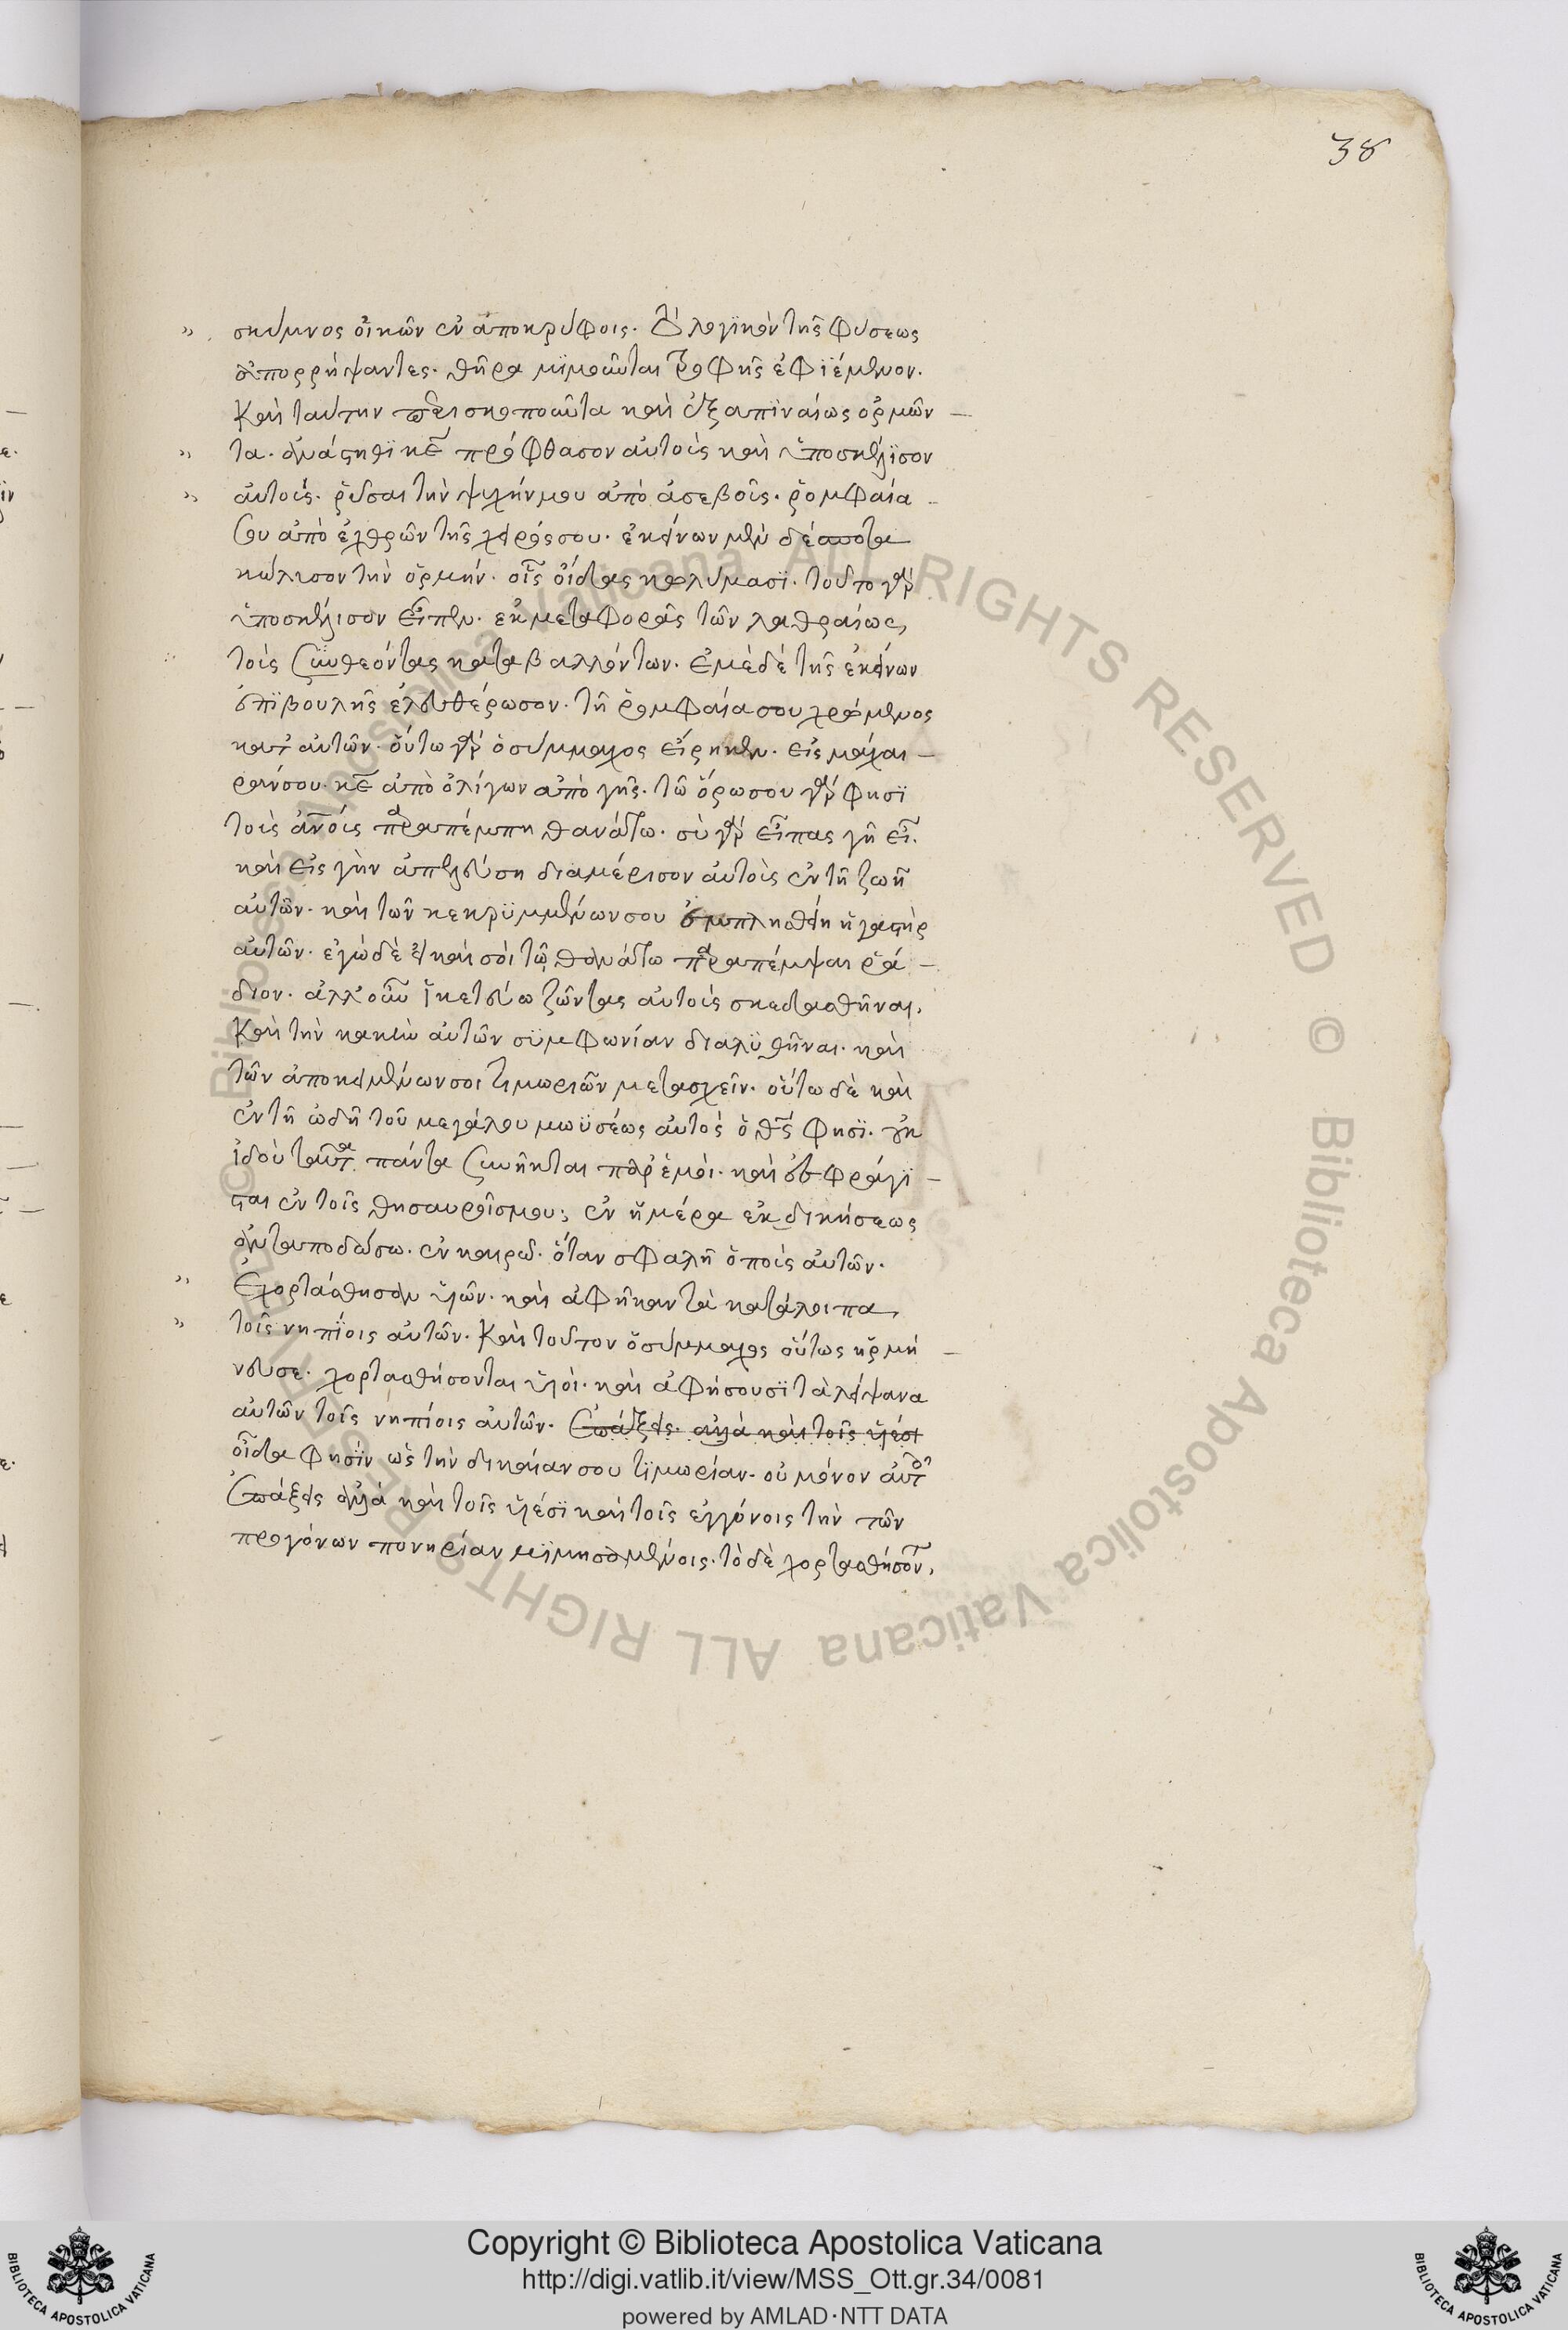 38
„ σκύμνος οἰκῶν ἐν ἀποκρύφοις. τὸ λογϊκὸν τῆς φύσεως
ἀπορρήψαντες. θῆρα μϊμοῦνται τροφῆς ἐφϊέμενον.
Καὶ ταύτην περισκοποῦντα καὶ ἐξαπϊναίως ὁρμῶν –
„ τα. ἀνάστηθϊ κε πρόφθασον αὐτοὺς καὶ ὑποσκέλϊσον
„ αὐτούς. ῥῦσαι τὴν ψυχήν μου ἀπὸ ἀσεβοῦς. ῥομφαία –
σου ἀπὸ ἐχθρῶν τῆς χειρός σου. ἐκείνων μὲν δέσποτα
κώλυσον τὴν ὁρμήν. οἷς οἶδας κωλύμασϊ. τοῦτο γὰρ
ὑποσκέλισον εἶπεν. ἐκ μεταφορᾶς τῶν λαθραίως
τοὺς συνθεόντας καταβαλλόντων. ἐμὲ δὲ τῆς ἐκείνων
ἐπϊβουλῆς ἐλευθέρωσον. τῆ ῥομφαία σου χρώμενος
κατ' αὐτῶν. οὕτω γὰρ ὁ σύμμαχος εἴρηκεν. εἰς μάχαι –
ράν σου. κε ἀπὸ ὀλίγων ἀπὸ γῆς. τῶ ὅρω σου γὰρ φησϊ
τοὺς ανους παραπέμπη θανάτω. σὺ γὰρ εἶπας γῆ εἶ.
καὶ εἰς γῆν ἀπελεύση διαμέρισον αὐτοὺς ἐν τῆ ζωῆ
αὐτῶν. καὶ τῶν κεκρϋμμένων σου ἐμπλησθείη ἡ γαστὴρ
αὐτῶν. ἐγὼ δὲ εἰ καί σοι τῶ θανάτω παραπέμψαι ῥά –
διον. ἀλλ' οὖν ἱκετεύω ζῶντας αὐτοὺς σκεδασθῆναι.
Καὶ τὴν κακὴν αὐτῶν σϋμφωνίαν διαλϋθῆναι. καὶ
τῶν ἀποκειμένων σοι τιμωριῶν μετασχεῖν. οὕτω δὲ καὶ
ἐν τῆ ὠδῆ τοῦ μεγάλου μωϋσέως αὐτὸς ὁ θς φησϊ. οὐκ
ἰδοὺ ταῦτα πάντα συνῆκται παρ' ἐμοί. καὶ ἐσφράγϊ –
σται ἐν τοῖς θησαυροῖς μου; ἐν ἡμέρα ἐκδικήσεως
ἀνταποδώσω. ἐν καιρῶ. ὅταν σφαλῆ ὁ ποὺς αὐτῶν.
„ Ἐχορτάσθησαν ὑιῶν. καὶ ἀφῆκαν τὰ κατάλοιπα
„ τοῖς νηπϊοις αὐτῶν. Καὶ τοῦτον ὁ σύμμαχος οὕτως ἡρμή –
νευσε. χορτασθήσονται ὑιοί. καὶ ἀφήσουσϊ τὰ λείψανα
αὐτῶν τοῖς νηπίοις αὐτῶν. ἐπάξεις. ἀλλὰ καὶ τοῖς ὑιέσι
οἶδα φησὶν ὡς τὴν δικαίαν σου τϊμωρίαν. οὐ μόνον αὐτοῖς
ἐπάξεις ἀλλὰ καὶ τοῖς ὑιέσϊ καὶ τοῖς ἐγγόνοις τὴν τῶν
προγόνων πονηρίαν μϊμησαμένοις. τὸ δὲ χορτασθήσον,
Copyright © Biblioteca Apostolica Vaticana
http://digi.vatlib.it/view/MSS_Ott.gr.34/0081
powered by AMLAD·NTT DATA